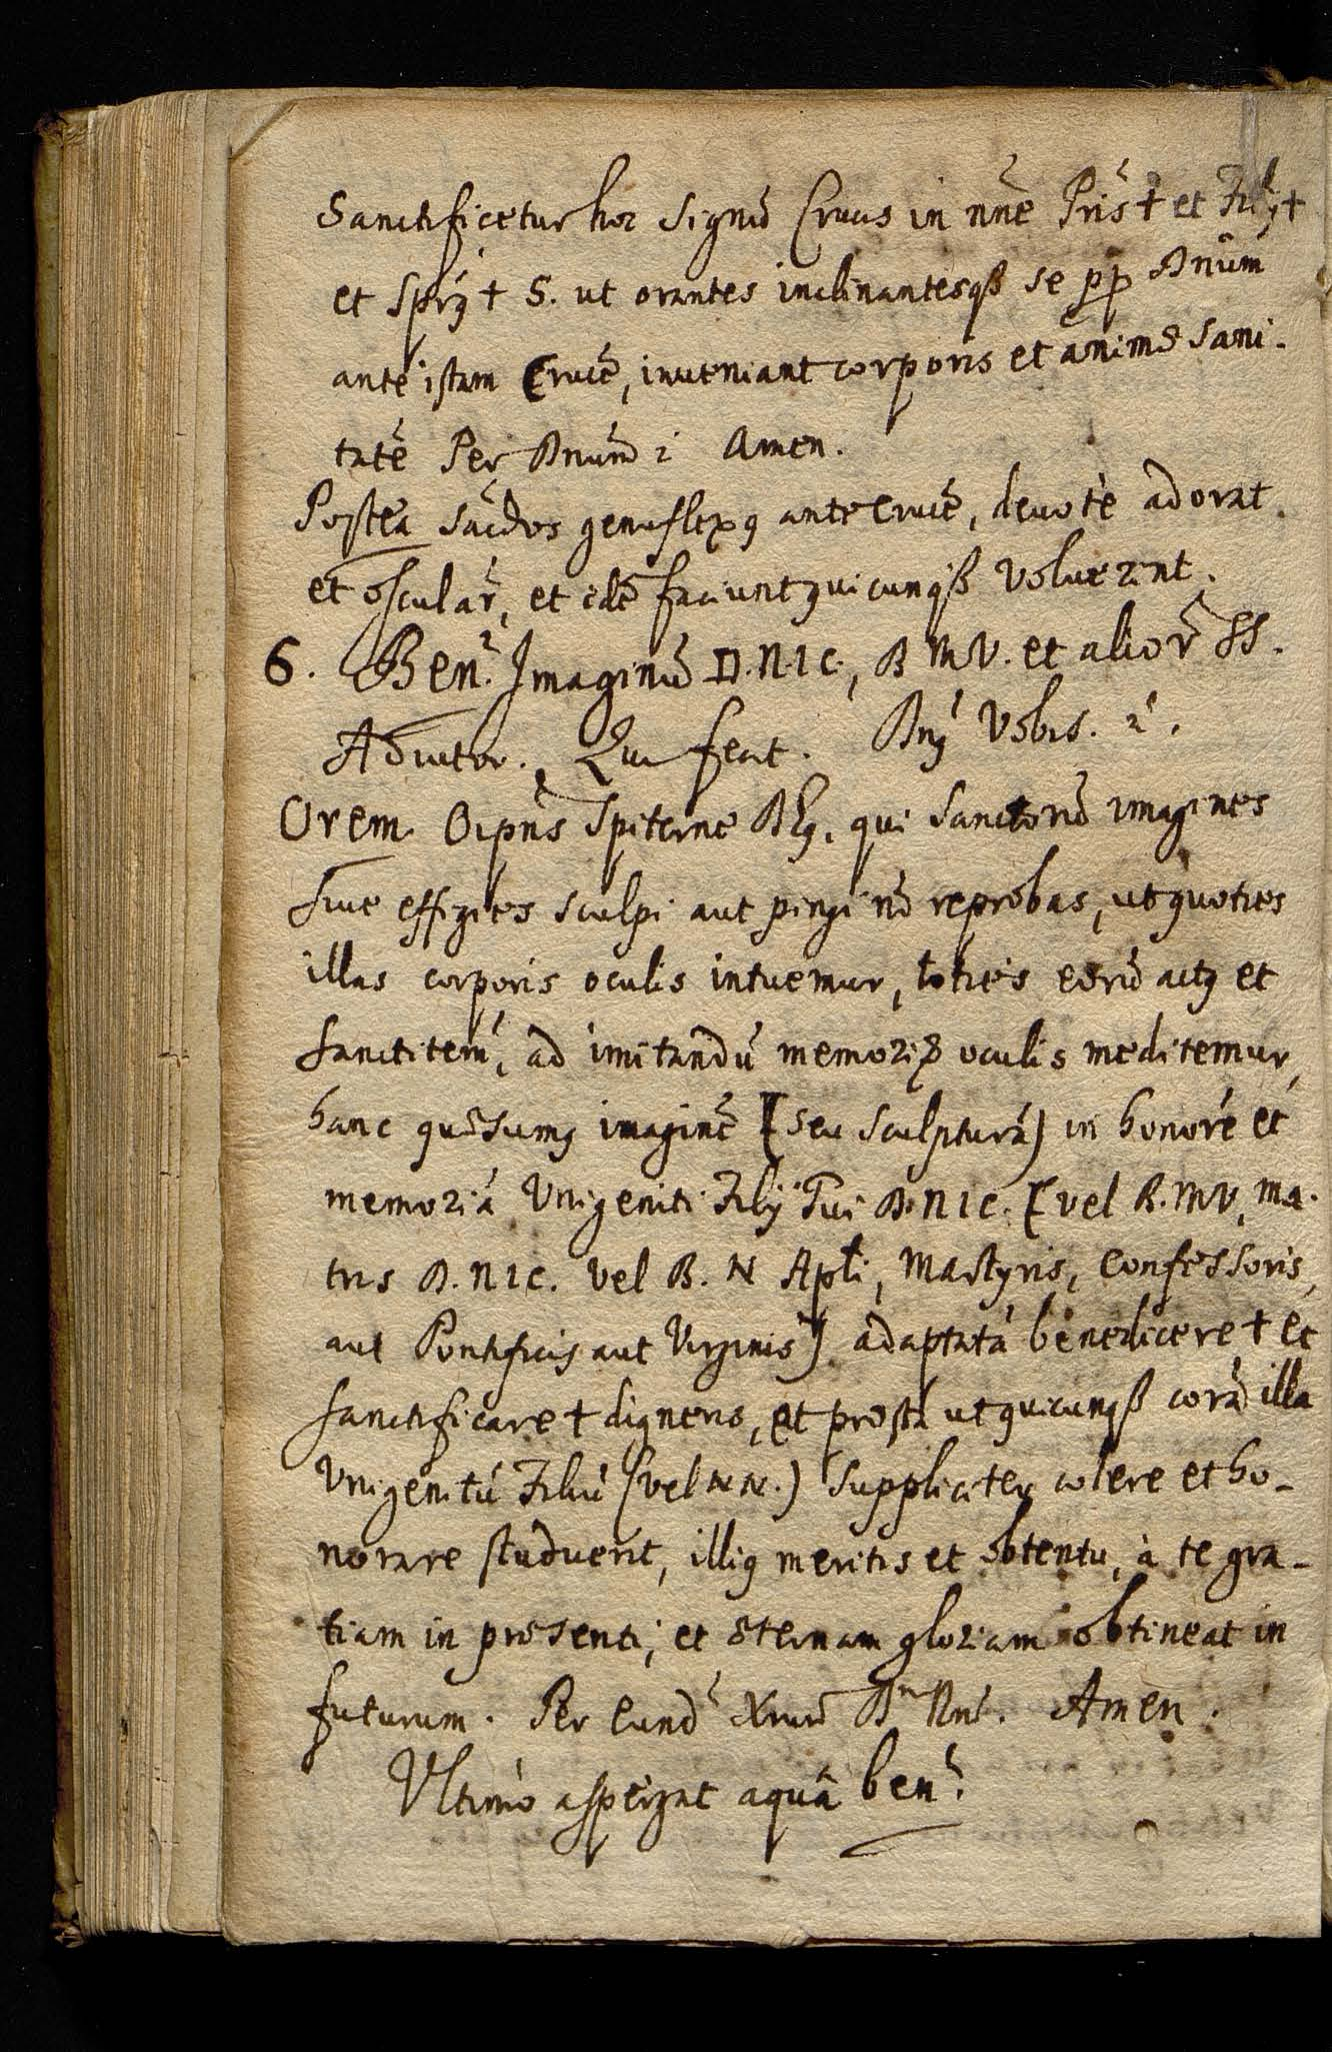 Sanctificetur hoc signũ Crucis in nñe Pris̃ † et Filij †
et Sprỹ † S. ut orantes inclinantesqß se pp Dnũm
ante istam Crucẽ, inveniant corporis et animæ sani-
tatẽ Per Dnũm 2 Amen.
Postea sac̃dos genuflexꝯ ante crucẽ, deuotè adorat
et osculat̃, et idẽ faciunt quicunqß voluerint.
6. Ben.̃ Imaginũ D.N.I.C., B M V. et alior̃ SS.
Adiutor. Qui fecit. Dnỹ Vobis. 2.
Orem. Oipñs Spiterne Dẽꝯ, qui Sanctorũ imagines
sive effigies sculpi aut pingi nõ reprobas, ut quoties
illas corporis oculis intuemur, toties eorũ actꝯ et
sanctitem̃, ad imitandũ memoriæ oculis meditemur,
hanc quæsumꝯ imaginẽ [seu sculpturã) in honorẽ et
memoriã Unigeniti Filij Tui D.N I C. [vel B. M V, ma-
tris D. N I C. vel B. N Apl̃i, Martyris, Confessoris,
aut Pontificis aut Virginis] adaptatã benedicere † et
sanctificare † digneris, et præsta ut quicunqß corã illa
Unigenitũ Filiũ (vel N N.) suppliciter colere et ho-
norare studuerit, illiꝯ meritis et obtentu, à te gra-
tiam in præsenti, et æternam gloriam obtineat in
futurum. Per eund̃ Xrum̃ D Nñ. Amen.
Ultimo aspergat aquâ ben.̃